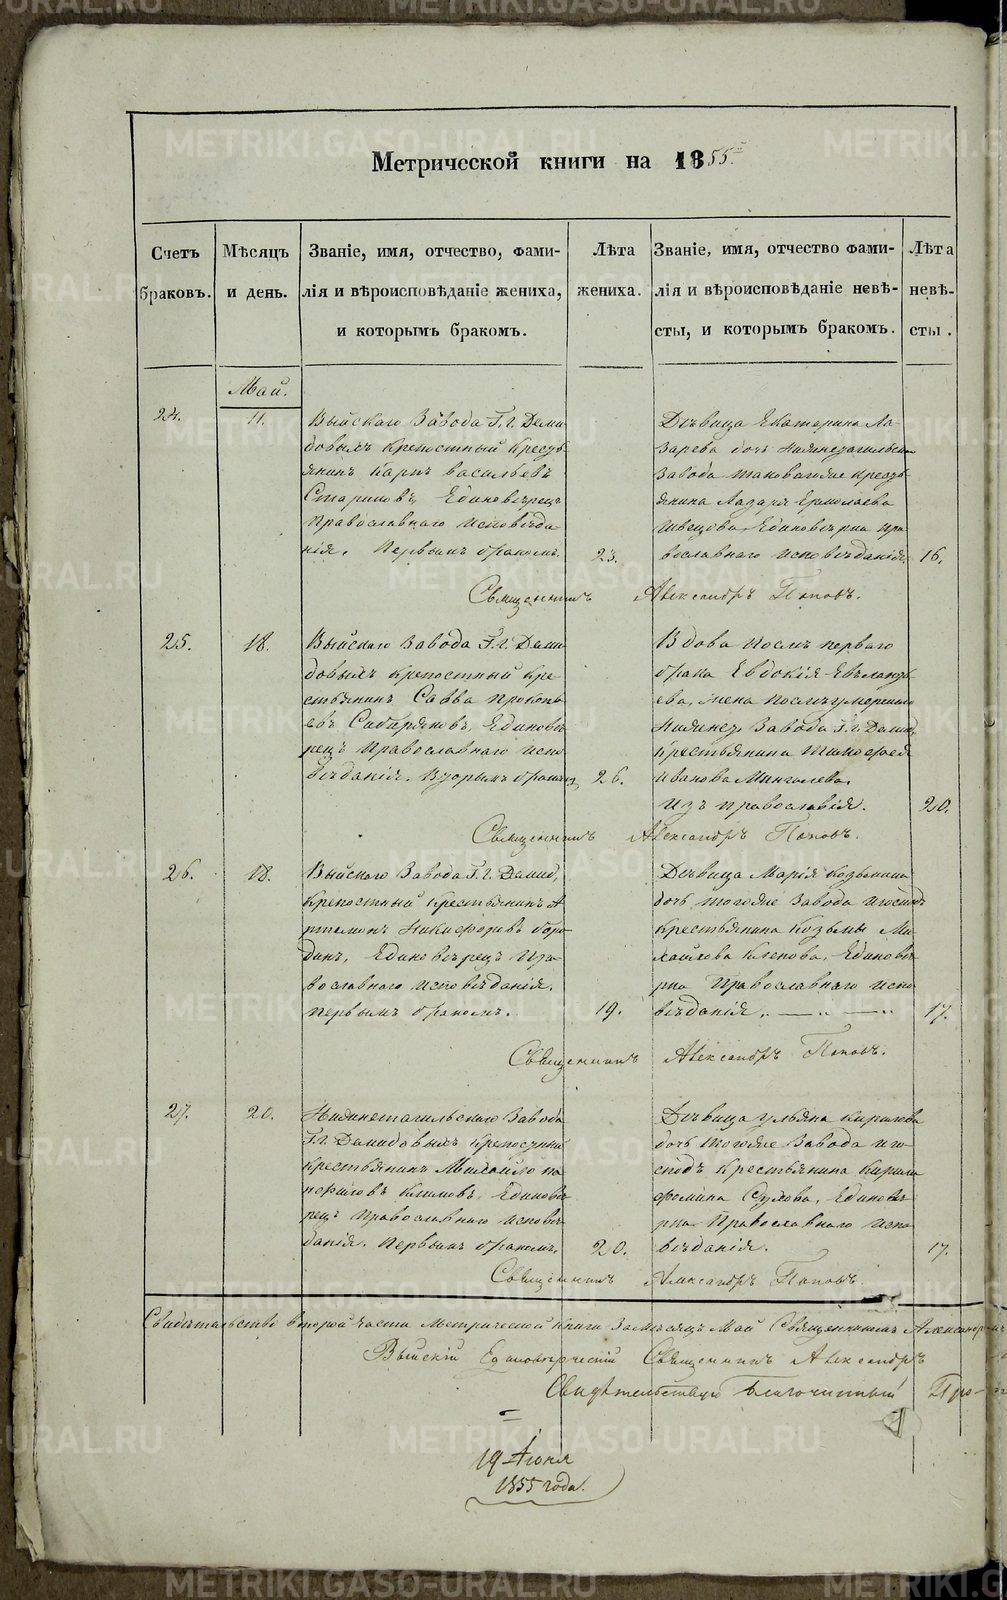 Метрической книги на 1855й.
Счетъ браковъ.
Мѣсяцъ и день.
Званіе, имя, отчество, фами-
лія и вѣроисповѣданіе жениха,
и которымъ бракомъ.
Лѣта жениха.
Званіе, имя, отчество фами-
лія и вѣроисповѣданіе невѣ-
сты, и которымъ бракомъ.
Лѣта невѣ-
сты.
Май.
24.
11.
Выйскаго Завода Г.г. Деми
довыхъ крепостный кресть
янинъ Карпъ Васильевъ
Стариковъ, Единоверецъ
Православнаго исповѣда
нія. Первымъ бракомъ.
23.
Дѣвица Екатерина Ла-
зарева дочь Нижнетагильска
Завода таковагоже кресть
янина Лазаря Ермолаева
Швецова. Единовѣрка пра
вославнаго исповѣданія.
16.
Священникъ Александръ Поповъ.
25.
18.
Выйскаго Завода Г.г. Деми
довыхъ крепостный кре-
стьянинъ Савва Прокопь
евъ Сибиряковъ, Единовѣ
рецъ Православнаго испо
вѣданія. Вторымъ бракомъ
26.
Вдова послѣ перваго
брака Евдокія
ева, жена послѣ умершаго
Нижнет. Завода Г.г. Демид
крестьянина Тимофея
Иванова
изъ православія.
20.
Священникъ Александръ Поповъ.
26.
18.
Выйскаго Завода Г.г. Демид,
крепостный крестьянинъ А
ртемонъ Никифоровъ боро
динъ, Единовѣрецъ Пра-
вославнаго исповѣданія.
первымъ бракомъ.
19.
Дѣвица Марія Козьмина
дочь тогоже Завода игоспод
крестьянина Козьмы Ми
хайлова Клепова, Единовѣ
рка Православнаго испо
вѣданія. — „ — „ —
17.
Священникъ Александръ Поповъ.
27.
20.
Нижнетагильскаго Завода
Г.г. Демидовыхъ крепостный
крестьянинъ Михайло па
нфиловъ Климовъ, Единовѣ
рецъ православнаго исповѣ
данія. Первымъ бракомъ.
20.
Дѣвица Ульяна Кирилова
дочь тогоже Завода иго
сподъ крестьянина Кирила
фомина Сухова, Единовѣ
рка Православнаго испо
вѣданія.
17.
Священникъ Александръ Поповъ.
Свидѣтельство второй части Метрической книги За мѣсяцъ Май Священникомъ Александромъ
Выйскій Единоверческій Священникъ Александръ
Свидѣтельствую Благочинный Про-
19 Июня
1855 года.
METRIKI.GASO-URAL.RU